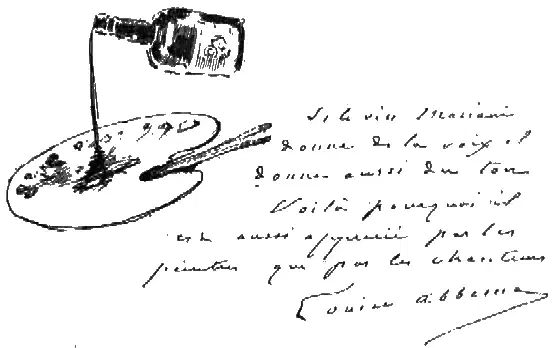 Si le vin Mariani
donne de la voix il
donne aussi du ton
Voilà pourquoi il
est aussi apprécié par les
peintres que par les chanteurs
Louise Abbema